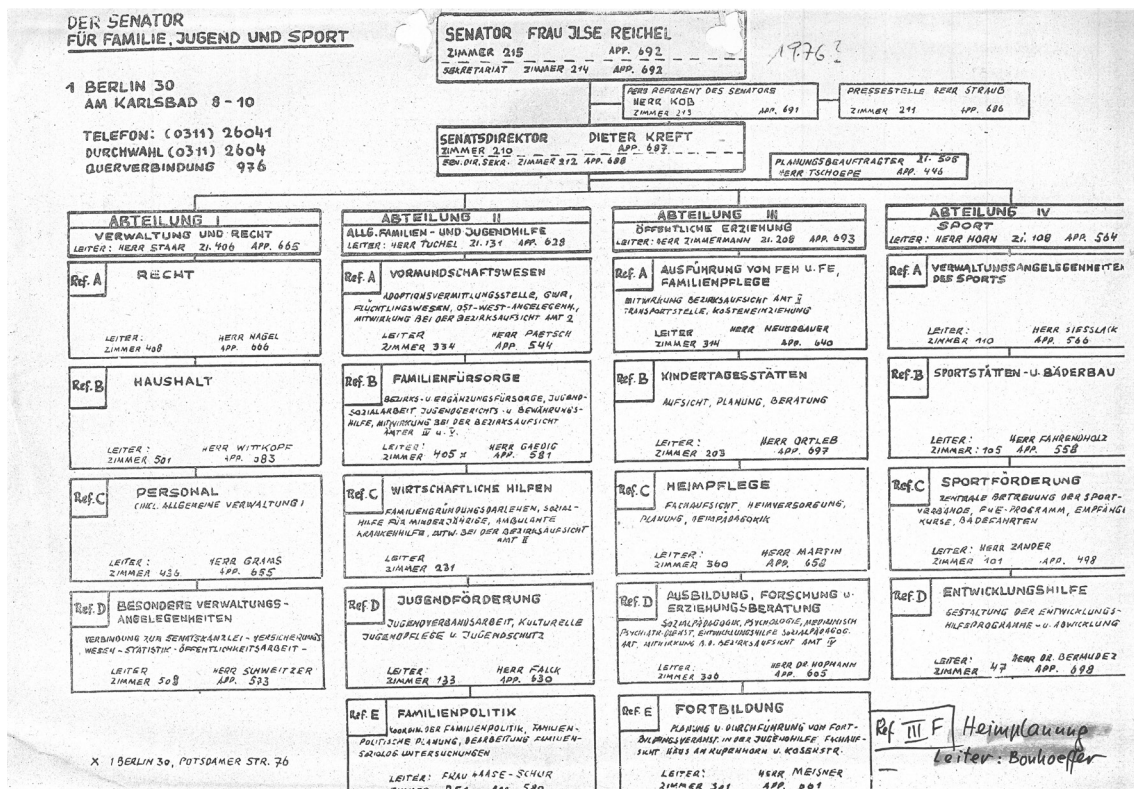 DER SENATOR
FÜR FAMILIE, JUGEND UND SPORT
1 BERLIN 30
AM KARLSBAD 8-10
TELEFON: (0311) 26041
DURCHWAHL (0311) 2604
QUERVERBINDUNG 976
SENATOR FRAU ILSE REICHEL
ZIMMER 215 APP. 692
SEKRETARIAT ZIMMER 214 APP. 692
1976?
PERS. REFERENT DES SENATORS
HERR KOB
ZIMMER 213 APP. 691
PRESSESTELLE HERR STRAUB
ZIMMER 211 APP. 686
SENATSDIREKTOR DIETER KREFT
ZIMMER 210 APP. 687
ZIMMER 212 APP. 688
PLANUNGSBEAUFTRAGTER ZI. 506
HERR TSCHOEPE APP. 446
ABTEILUNG I
VERWALTUNG UND RECHT
LEITER: HERR STAAR ZI. 406 APP. 665
Ref. A RECHT
LEITER: HERR NAGEL
ZIMMER 408 APP. 666
Ref. B HAUSHALT
LEITER: HERR WITTKOPF
ZIMMER 501 APP. 383
Ref. C PERSONAL
(INCL. ALLGEMEINE VERWALTUNG)
LEITER: HERR GRAMS
ZIMMER 436 APP. 655
Ref. D BESONDERE VERWALTUNGS-
ANGELEGENHEITEN
VERBINDUNG ZUR SENATSKANZLEI - VERSICHERUNGS
WESEN - STATISTIK - ÖFFENTLICHKEITSARBEIT -
LEITER HERR SCHWEITZER
ZIMMER 508 APP. 573
X 1 BERLIN 30, POTSDAMER STR. 76
ABTEILUNG II
ALLG. FAMILIEN- UND JUGENDHILFE
LEITER: HERR TUCHEL ZI. 131 APP. 628
Ref. A VORMUNDSCHAFTSWESEN
ADOPTIONSVERMITTLUNGSSTELLE, GWR,
FLÜCHTLINGSWESEN, OST-WEST-ANGELEGENH.,
MITWIRKUNG BEI DER BEZIRKSAUFSICHT AMT 2
LEITER HERR PAETSCH
ZIMMER 334 APP. 544
Ref. B FAMILIENFÜRSORGE
BEZIRKS- U. ERGÄNZUNGSFÜRSORGE, JUGEND-
SOZIALARBEIT JUGENDGERICHTS- U. BEWÄHRUNGS-
HILFE, MITWIRKUNG BEI DER BEZIRKSAUFSICHT
ÄMTER IV U. V.
LEITER: HERR GAEDIG
ZIMMER 405 X APP. 581
Ref. C WIRTSCHAFTLICHE HILFEN
FAMILIENGRÜNDUNGSDARLEHEN, SOZIAL-
HILFE FÜR MINDERJÄHRIGE, AMBULANTE
KRANKENHILFE, MITW. BEI DER BEZIRKSAUFSICHT
AMT II
LEITER
ZIMMER 231
Ref. D JUGENDFÖRDERUNG
JUGENDVERBANDSARBEIT, KULTURELLE
JUGENDPFLEGE U. JUGENDSCHUTZ
LEITER: HERR FALCK
ZIMMER 133 APP. 630
Ref. E FAMILIENPOLITIK
KOORDIN. DER FAMILIENPOLITIK, FAMILIEN-
POLITISCHE PLANUNG, BEARBEITUNG FAMILIEN-
SOZIOLOG. UNTERSUCHUNGEN
LEITER: FRAU HAASE-SCHUR
ABTEILUNG III
ÖFFENTLICHE ERZIEHUNG
LEITER: HERR ZIMMERMANN ZI. 208 APP. 693
Ref. A AUSFÜHRUNG VON FEH U. FE,
FAMILIENPFLEGE
MITWIRKUNG BEZIRKSAUFSICHT AMT V
TRANSPORTSTELLE, KOSTENEINZIEHUNG
LEITER HERR NEUGEBAUER
ZIMMER 314 APP. 640
Ref. B KINDERTAGESSTÄTTEN
AUFSICHT, PLANUNG, BERATUNG
LEITER: HERR ORTLEB
ZIMMER 203 APP. 697
Ref. C HEIMPFLEGE
FACHAUFSICHT, HEIMVERSORGUNG,
PLANUNG, HEIMPÄDAGOGIK
LEITER: HERR MARTIN
ZIMMER 360 APP. 658
Ref. D AUSBILDUNG, FORSCHUNG U.
ERZIEHUNGSBERATUNG
SOZIALPÄDAGOGIK, PSYCHOLOGIE, MEDIZINISCH
PSYCHIATR. DIENST, ENTWICKLUNGSHILFE SOZIALPÄDAGOG.
ART, MITWIRKUNG B. D. BEZIRKSAUFSICHT AMT IV
LEITER: HERR DR. HOPMANN
ZIMMER 306 APP. 605
Ref. E FORTBILDUNG
PLANUNG U. DURCHFÜHRUNG VON FORT-
BILDUNGSVERANST. IN DER JUGENDHILFE, FACHAUF-
SICHT HAUS AM RUPENHORN U. KOSENSTR.
LEITER: HERR MEISNER
ZIMMER 301 APP. 661
ABTEILUNG IV
SPORT
LEITER: HERR HORN ZI. 108 APP. 564
Ref. A VERWALTUNGSANGELEGENHEITEN
DES SPORTS
LEITER: HERR SIESSLACK
ZIMMER 110 APP. 566
Ref. B SPORTSTÄTTEN- U. BÄDERBAU
LEITER: HERR FAHRENDHOLZ
ZIMMER: 105 APP. 558
Ref. C SPORTFÖRDERUNG
ZENTRALE BETREUUNG DER SPORT-
VERBÄNDE, FUE-PROGRAMM, EMPFÄNGE
KURSE, BADEFAHRTEN
LEITER: HERR ZANDER
ZIMMER 101 APP. 498
Ref. D ENTWICKLUNGSHILFE
GESTALTUNG DER ENTWICKLUNGS-
HILFSPROGRAMME- U. ABWICKLUNG
LEITER: HERR DR. BERMUDEZ
ZIMMER 47 APP. 698
Ref III F Heimplanung
Leiter: Bonhoeffer